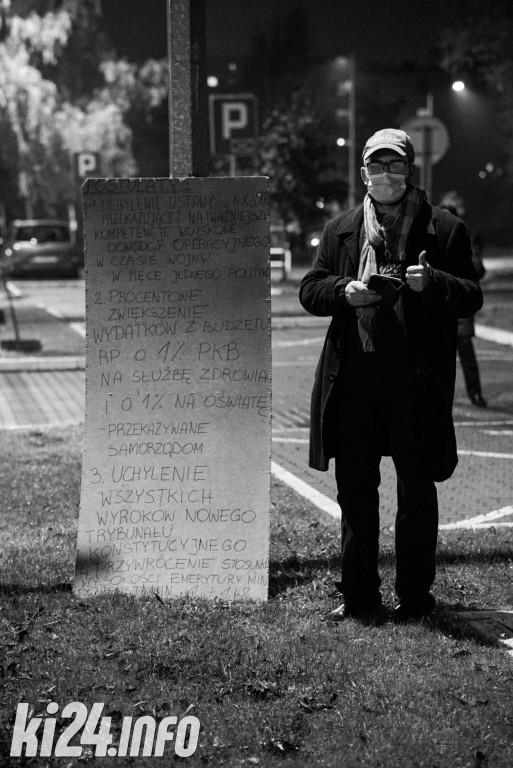 P
P
POSTULATY:
1. UCHYLENIE USTAWY
PRZEKAZUJĄCEJ NAJWAŻNIEJSZE
KOMPETENCJE WOJSKOWE
DOWÓDCY OPERACYJNEGO
W CZASIE WOJNY
W RĘCE JEDNEGO POLITYKA
2. PROCENTOWE
ZWIĘKSZENIE
WYDATKÓW Z BUDŻETU
RP O 1% PKB
NA SŁUŻBĘ ZDROWIA
I O 1% NA OŚWIATĘ
- PRZEKAZYWANE
SAMORZĄDOM
3. UCHYLENIE
WSZYSTKICH
WYROKÓW NOWEGO
TRYBUNAŁU
KONSTYTUCYJNEGO
PRZYWRÓCENIE STOSUNKU
WYSOKOŚCI EMERYTURY MIN
ki24.info